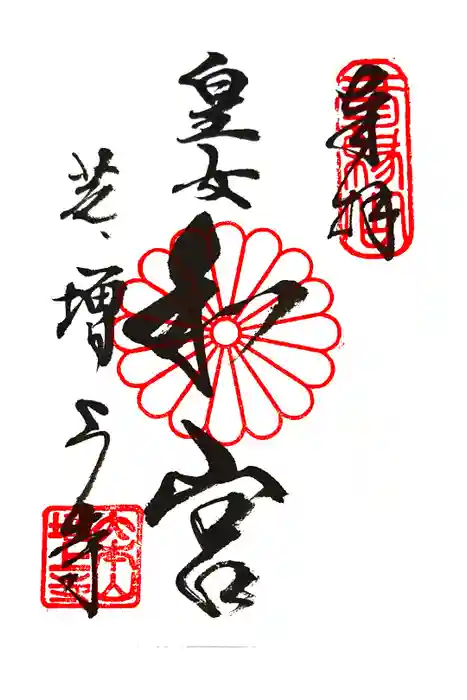 奉拝
皇女
和宮
芝、増上寺
大本山
増上寺